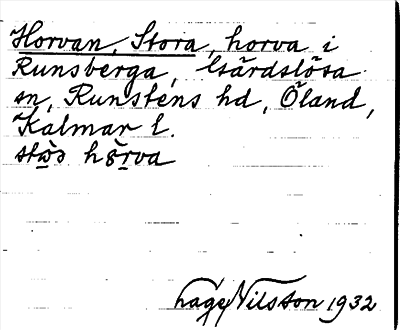 Horvan, Stora, horva i
Runsberga, Gärdslösa
sn, Runstens hd, Öland,
Kalmar l.
horva
Hage Nilsson 1932